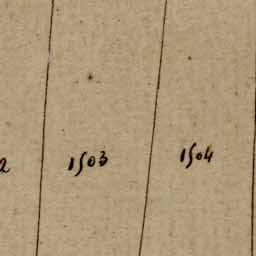 2 1503 1504